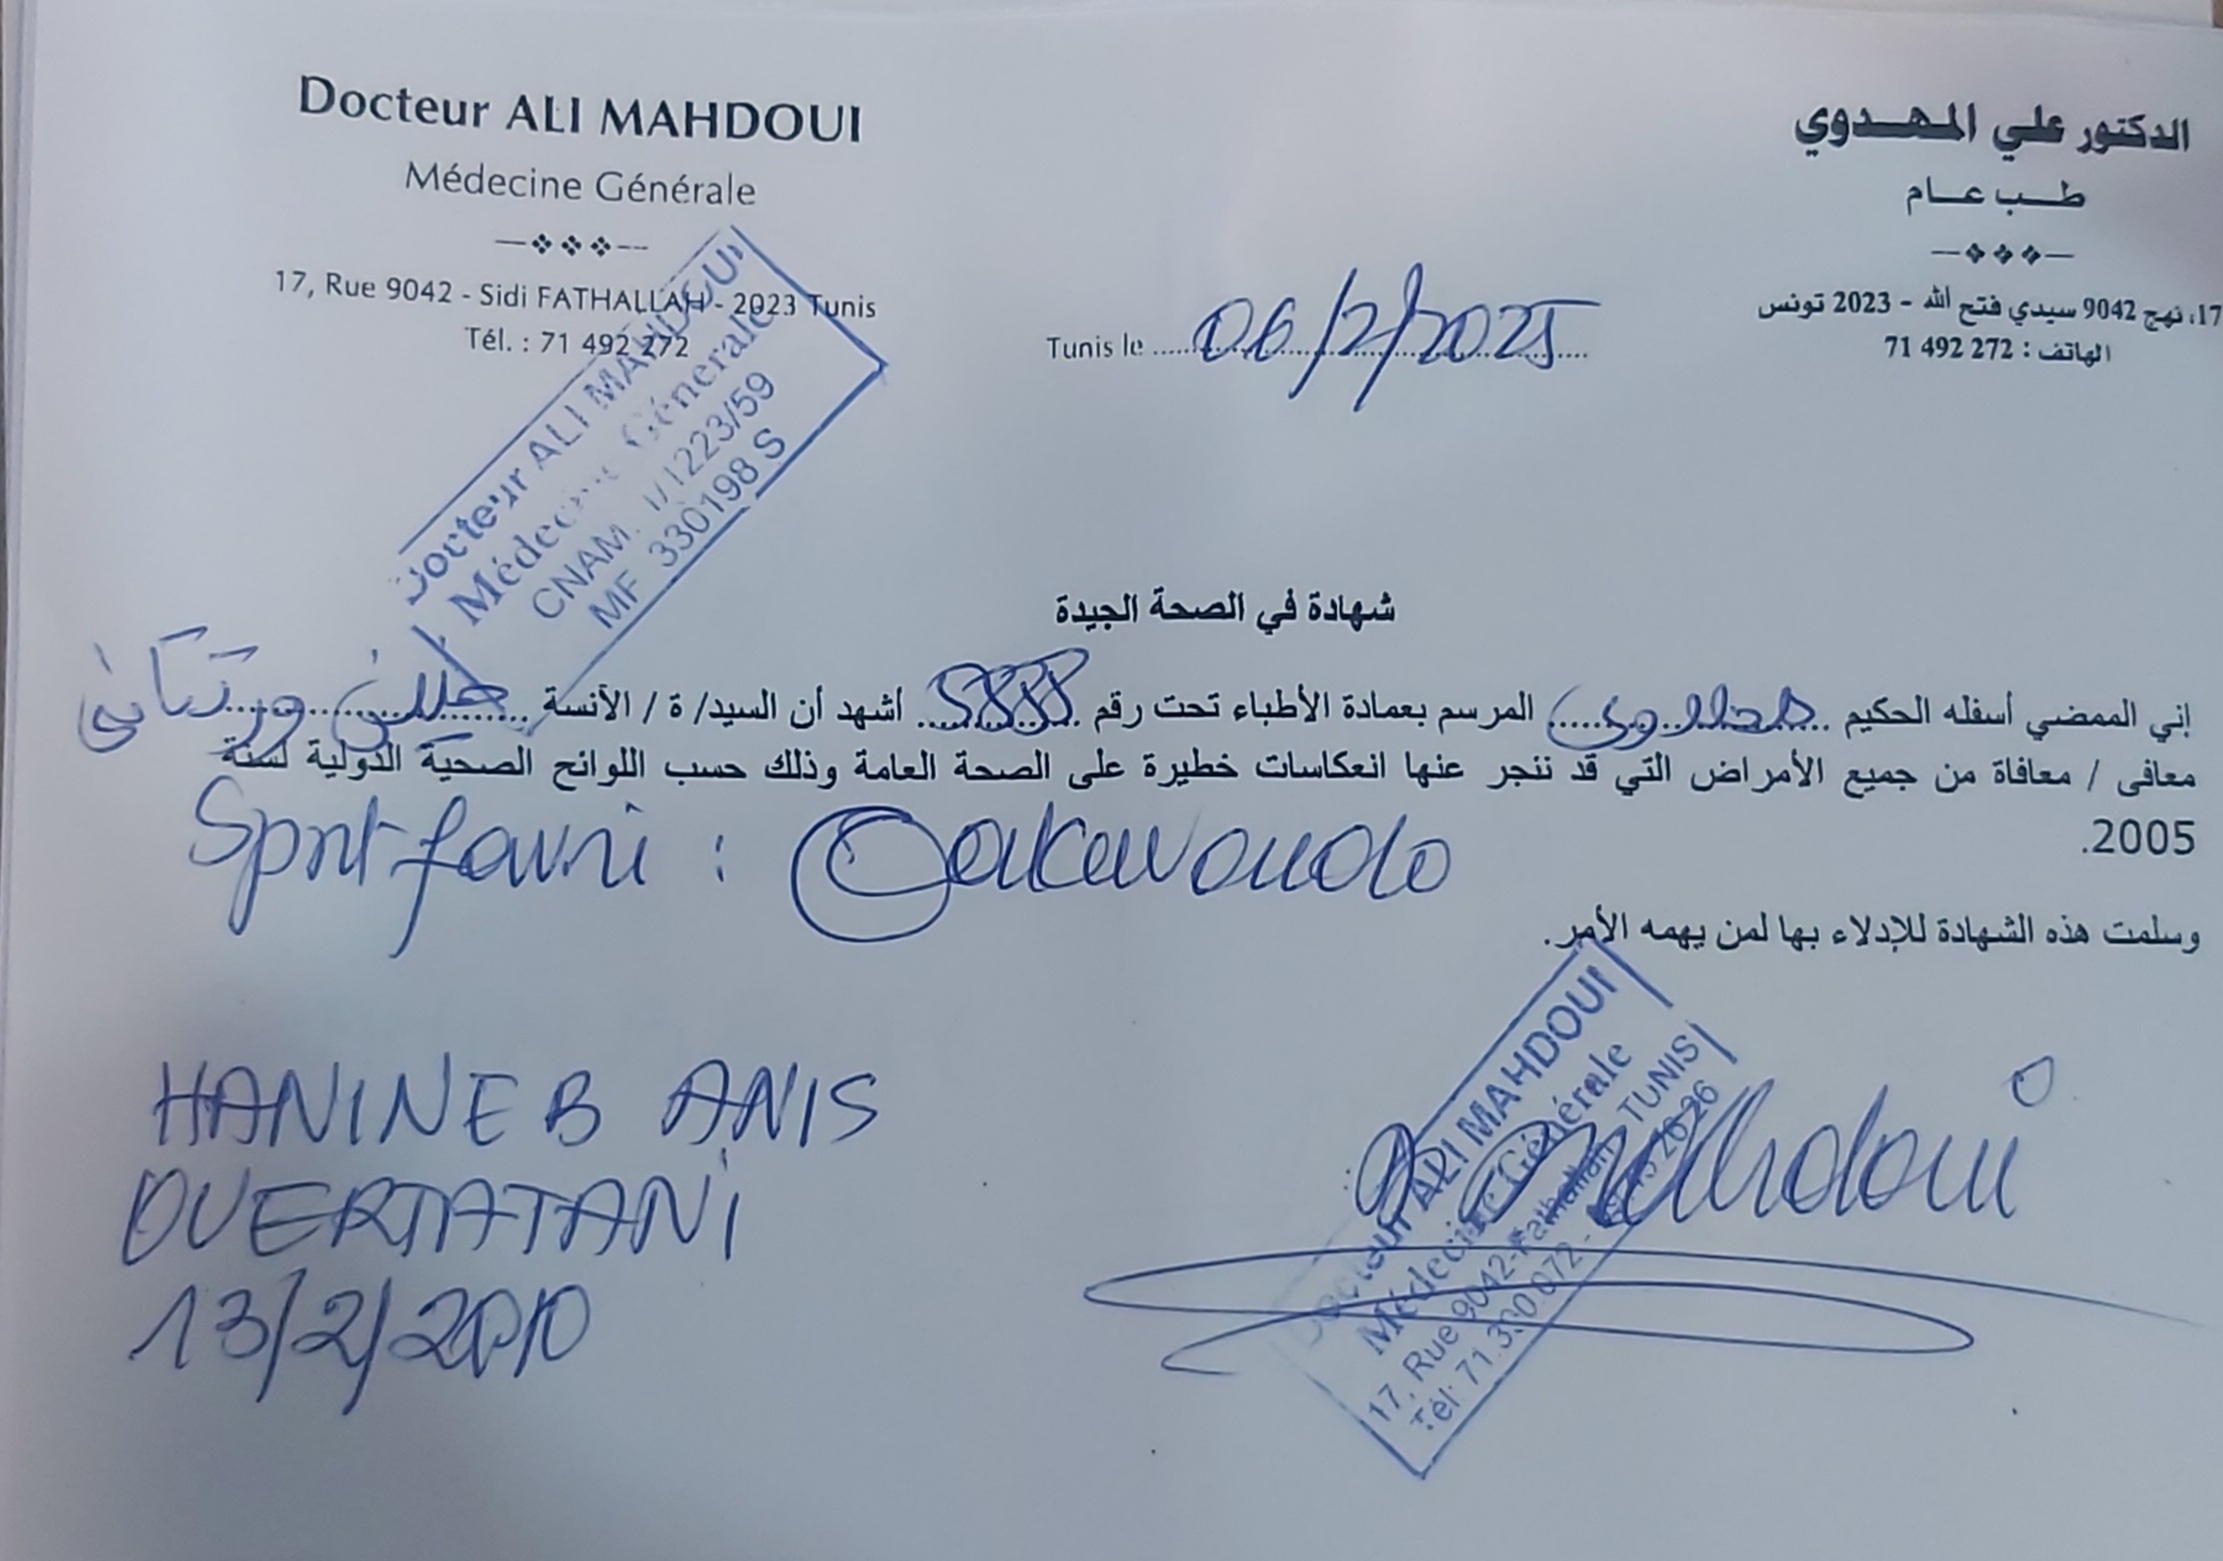 Docteur ALI MAHDOUI
Médecine Générale
17, Rue 9042 - Sidi FATHALLAH - 2023 Tunis
Tél. : 71 492 272
الدكتور علي المهدوي
طب عام
17، نهج 9042 سيدي فتح الله - 2023 تونس
الهاتف : 272 492 71
Tunis le 06/2/2025
Docteur ALI MAHDOUI
Médecine Générale
CNAM. 1/1223/59
MF 330198 S
شهادة في الصحة الجيدة
إني الممضي أسفله الحكيم المرسم بعمادة الأطباء تحت رقم أشهد أن السيد/ ة / الأنسة ورتتاني
معافى / معافاة من جميع الأمراض التي قد ننجر عنها انعكاسات خطيرة على الصحة العامة وذلك حسب اللوائح الصحية الدولية لسنة
2005.
Sport :
وسلمت هذه الشهادة للإدلاء بها لمن يهمه الأمر.
HANINE B ANIS
OUERTATANI
13/2/2010
Docteur ALI MAHDOUI
Médecine Générale
17, Rue 9042-Fathallah TUNIS
Tél: 71.390.072 -
Mahdoui